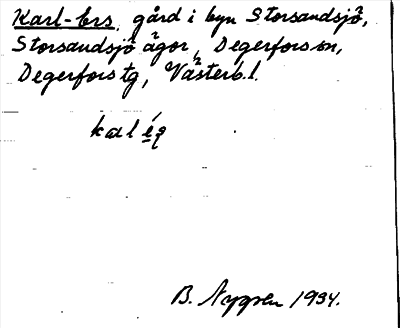 Karl-Ers, gård i byn Storsandsjö,
Storsandsjö ägor, Degerfors sn,
Degerfors tg, Västerb.l.
karl
B. Nygren 1934.